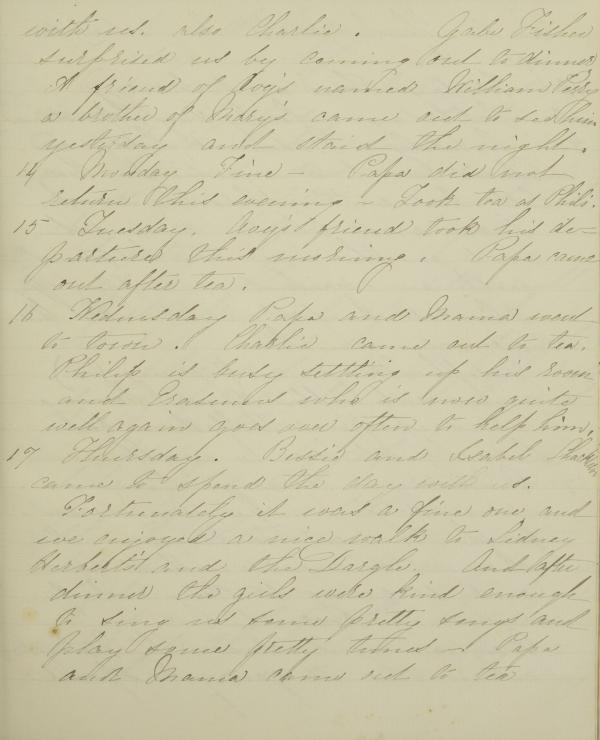 with us. also Charlie. Gabe Fisher
surprised us by coming out to dinner
A friend of Roy's named William Perry
a brother of Mary's came out to see him
yesterday and staid the night.
14 Monday Fine - Papa did not
return this evening - Took tea at Phil's.
15 Tuesday. Roy's friend took his de-
parture this morning. Papa came
out after tea.
16 Wednesday Papa and Mama went
to town. Charlie came out to tea.
Philip is busy settling up his room
and Erasmus who is now quite
well again goes over often to help him.
17 Thursday. Bessie and Isabel
came to spend the day with us.
Fortunately it was a fine one and
we enjoyed a nice walk to Sidney
Herbert's and the Dargle. And after
dinner the girls were kind enough
to sing us some pretty songs and
play some pretty tunes - Papa
and Mama came out to tea